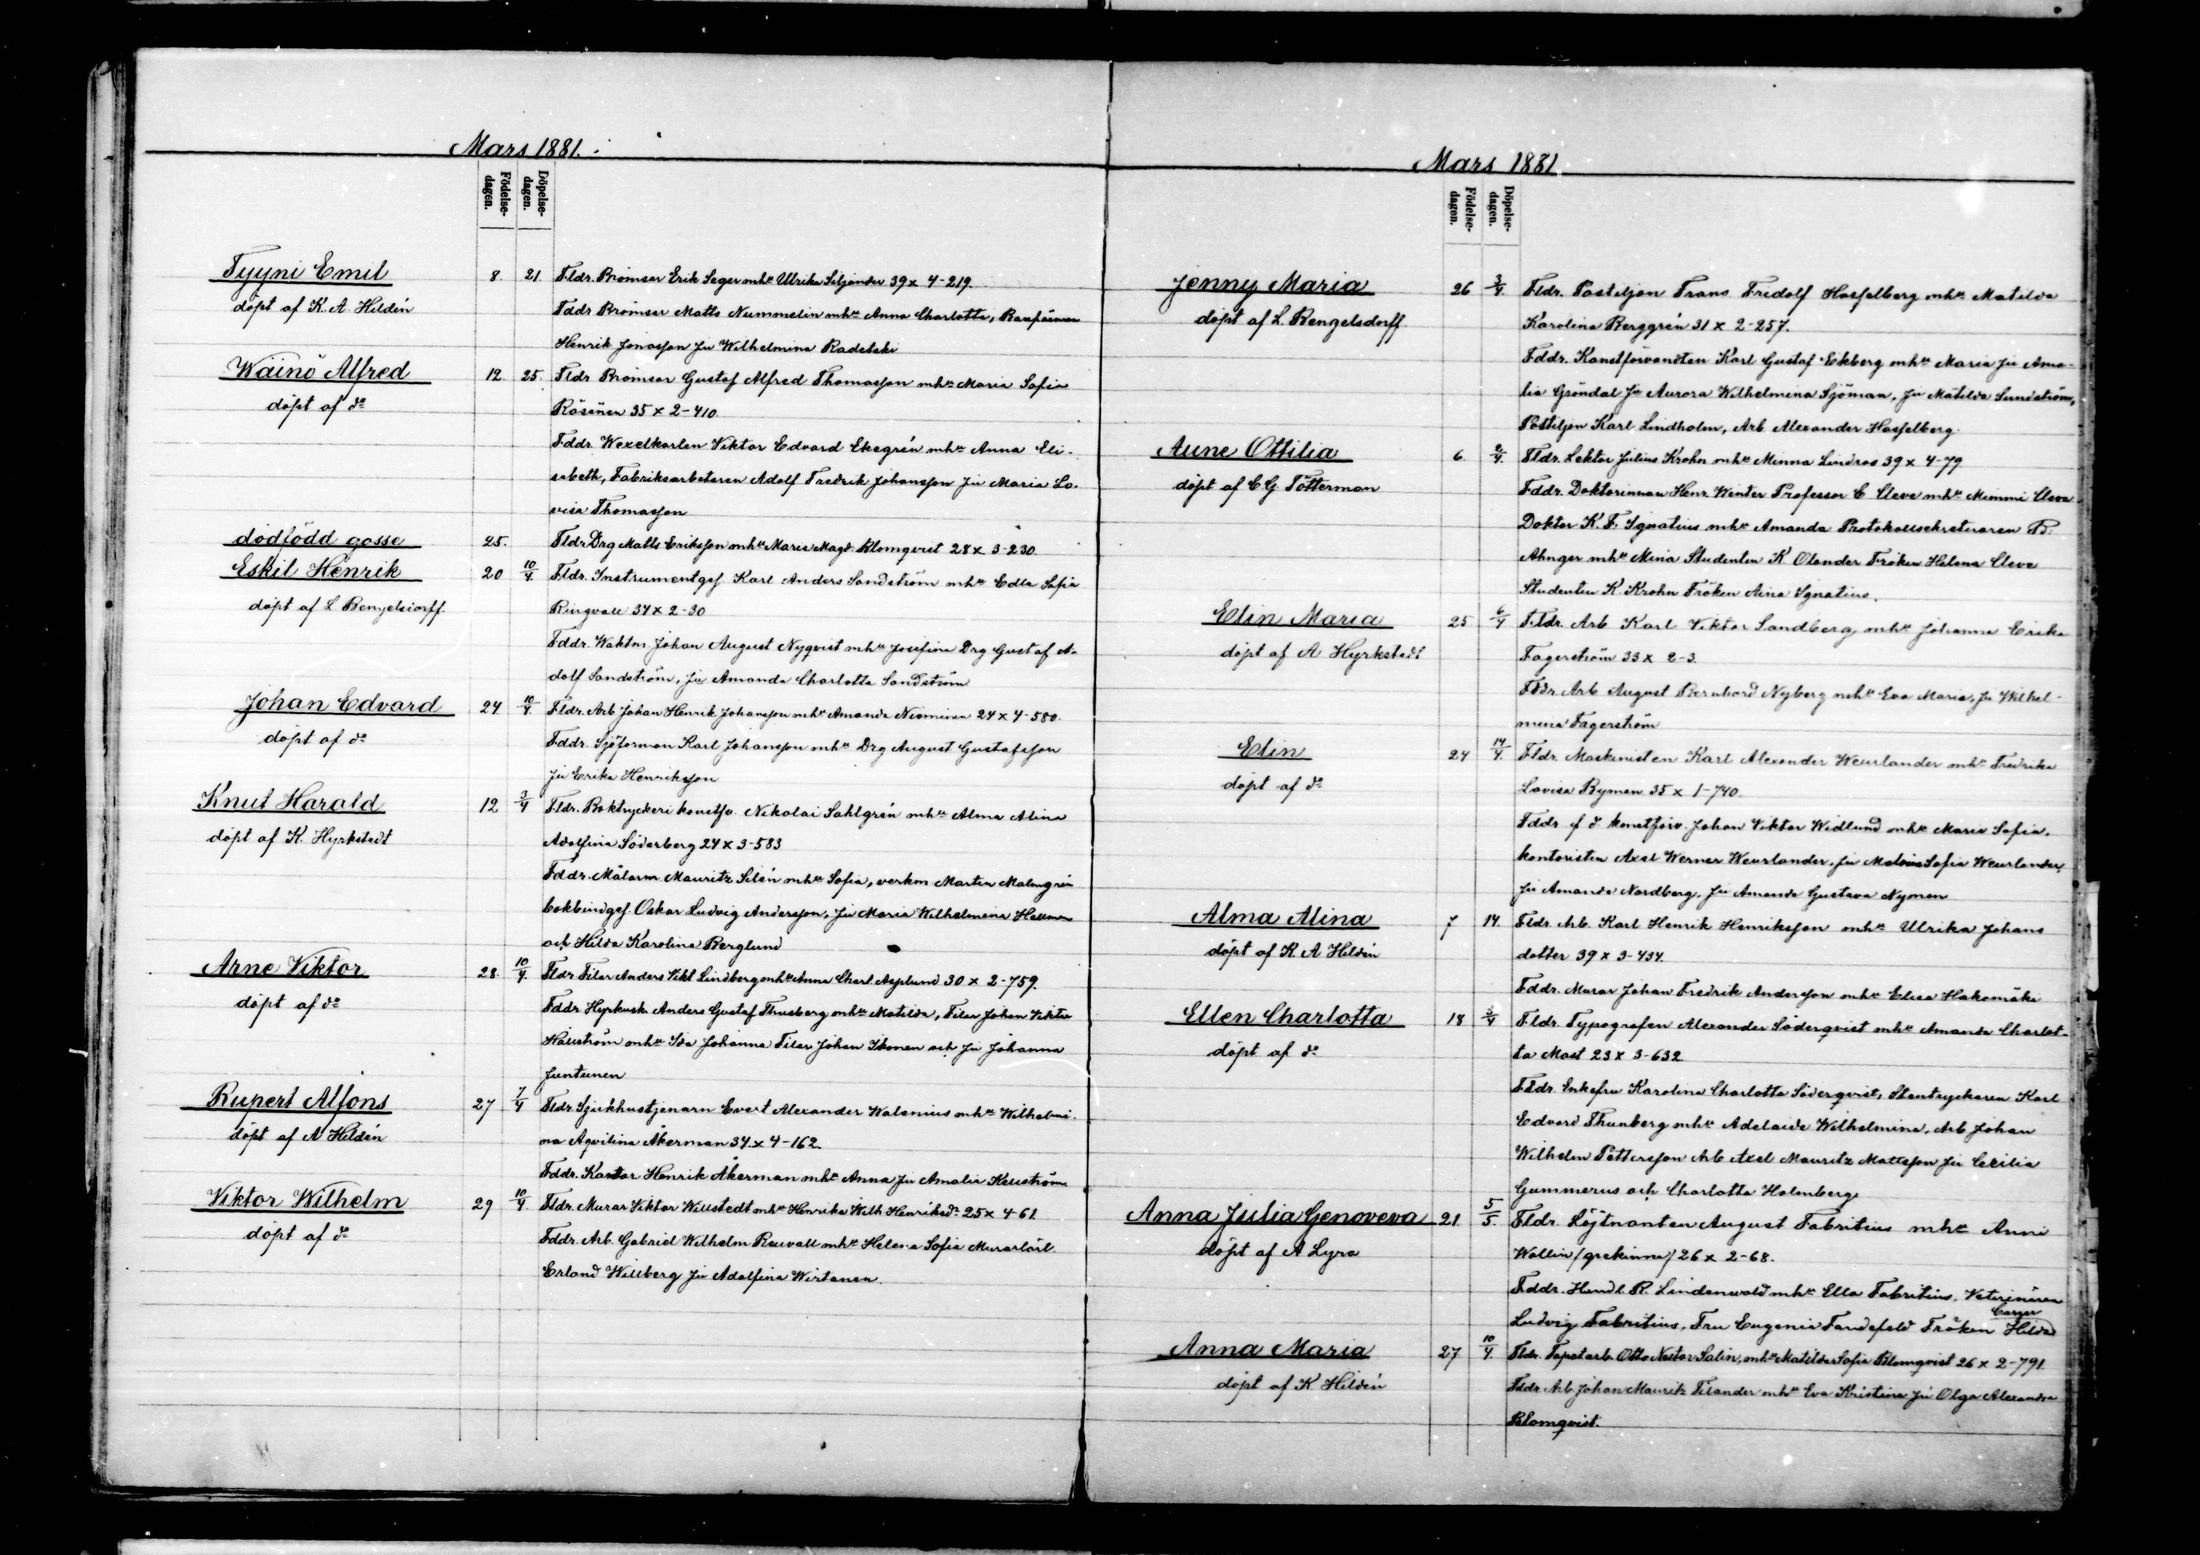 Mars 1881.
Födelse-dagen. Döpelse-dagen.
Tyyni Emil 8. 21. Fldr. Bromser Erik Seger mhu Ulrika Siljander 39 x 4-219.
döpt af K. A. Hildén Fddr Bromser Matts Nummelin mhu Anna Charlotta,
Henrik Jonasson Jfr Wilhelmina Radetski
Wäinö Alfred 12. 25. Fldr Bromsar Gustaf Alfred Thomasson mhu Maria Sofia
döpt af do Räsänen 35 x 2-410.
Fddr. Wexelkarlen Viktor Edvard Ekegrén mhu Anna Eli-
sabeth, Fabriksarbetaren Adolf Fredrik Johansson Jfr Maria Lo-
visa Thomasson
dödfödd gosse 25. Fldr Drg Matts Eriksson mhu Maria Magd. Blomqvist 28 x 3-230.
Eskil Henrik 20 10/4 Fldr. Instrumentgsf. Karl Anders Sandström mhu Edla Sofia
döpt af L Bengelsdorff. Ringvall 34 x 2-30
Fddr. Waktm. Johan August Nyqvist mhu Josefina Drg Gustaf A-
dolf Sandström, Jfr Amanda Charlotta Sandström
Johan Edvard 24 10/4 Fldr. Arb Johan Henrik Johansson mhu Amanda Nieminen 24 x 4-580.
döpt af do Fddr. Sjöforman Karl Johansson mhu Drg August Gustafsson
Jfr Erika Henriksson
Knut Harald 12 3/4 Fldr. Boktryckeri konstfv. Nikolai Sahlgrén mhu Alma Alina
döpt af K. Hyrkstedt Adolfina Söderberg 24 x 3-583
Fddr. Målarm. Mauritz Silén mhu Sofia, verkm Martin Malmgrén
bokbindgsf. Oskar Ludvig Andersson, Jfr Maria Wilhelmina Hallman
och Hilda Karolina Berglund
Arne Viktor 28. 10/4 Fldr Filar Anders Vikt Lindberg mhu Anna Charl Asplund 30 x 2-759.
döpt af do Fddr Hyrkusk Anders Gustaf Thusberg mhu Matilda, Filar Johan Viktor
Hällström mhu Ida Johanna Filar Johan Ikonen och Jfr Johanna
Juntunen
Rupert Alfons 27 7/4 Fldr. Sjukhustjenarn Evert Alexander Walenius mhu Wilhelmi-
döpt af A Hildén na Aqvilina Åkerman 34 x 4-162.
Fddr. Kantor Henrik Åkerman mhu Anna Jfr Amalia Hellström
Viktor Wilhelm 29 10/4 Fldr. Murar Viktor Willstedt mhu Henrika Wilh Henriksdr 25 x 4-61
döpt af do Fddr. Arb. Gabriel Wilhelm Reuvall mhu Helena Sofia Murarlärl.
Erland Willberg Jfr Adolfina Wirtanen.
Mars 1881
Födelse-dagen. Döpelse-dagen.
Jenny Maria 26 3/4. Fldr. Postiljon Frans Fridolf Hasselberg mhu Matilda
döpt af L. Bengelsdorff. Karolina Berggrén 31 x 2-257.
Fddr. Konstförvandten Karl Gustaf Ekberg mhu Maria Jfr Ama-
lia Gröndal Jfr Aurora Wilhelmina Sjöman, Jfr Matilda Sundström,
Postiljon Karl Lindholm, Arb Alexander Hasselberg.
Aune Ottilia 6. Fldr. Lektor Julius Krohn mhu Minna Lindroos 39 x 4-79
döpt af C G Tötterman Fddr. Doktorinnan Henr. Winter Professor E Cleve mhu Mimmi Cleve
Doktor K. F. Ignatius mhu Amanda Protokollsekreteraren B.
Ahnger mhu Mina Studenten K Olander Fröken Helena Cleve
Studenten K. Krohn Fröken Aina Ignatius.
Elin Maria 25 6/4 Fldr. Arb Karl Viktor Sandberg mhu Johanna Erika
döpt af A Hyrkstedt Fagerström 33 x 2-3.
Fddr. Arb August Bernhard Nyberg mhu Eva Maria, Jfr Wilhel-
mina Fagerström
Elin 24 14/4. Fldr. Maskinisten Karl Alexander Weurlander mhu Fredrika
döpt af do Lovisa Ryman 35 x 1-740.
Fddr. f d konstförv. Johan Viktor Widlund mhu Maria Sofia,
kontoristen Axel Werner Weurlander, Jfr Malvina Sofia Weurlander,
Jfr Amanda Nordberg, Jfr Amanda Gustava Nyman
Alma Alina 7 14. Fldr Arb. Karl Henrik Henriksson mhu Ulrika Johans
döpt af K. A Hildén dotter 39 x 3-434.
Fddr. Murar Johan Fredrik Andersson mhu Elisa Hakomäki
Ellen Charlotta 18 3/4 Fldr. Typografen Alexander Söderqvist mhu Amanda Charlot-
döpt af do ta Mast 23 x 3-632
Fddr. Enkefru Karolina Charlotta Söderqvist, Stentryckaren Karl
Edvard Thunberg mhu Adelaide Wilhelmina, Arb Johan
Wilhelm Pettersson Arb Axel Mauritz Mattsson Jfr Cecilia
Gummerus och Charlotta Holmberg
Anna Julia Genoveva 21 5/5. Fldr. Löjtnanten August Fabritius mhu Anni
döpt af A Lyra Wallin /grekinna/ 26 x 2-68.
Fddr. Handl. R. Lindenwald mhu Ella Fabritius, Veterinären
Ludvig Fabritius, Fru Eugenia Tandefeld Fröken Hilda
Anna Maria 27 10/4. Fldr. Tapetarb. Otto Nestor Salin, mhu Matilda Sofia Blomqvist 26 x 2-791
döpt af K Hildén Fddr. Arb Johan Mauritz Tilander mhu Eva Kristina Jfr Olga Alexandra
Blomqvist.